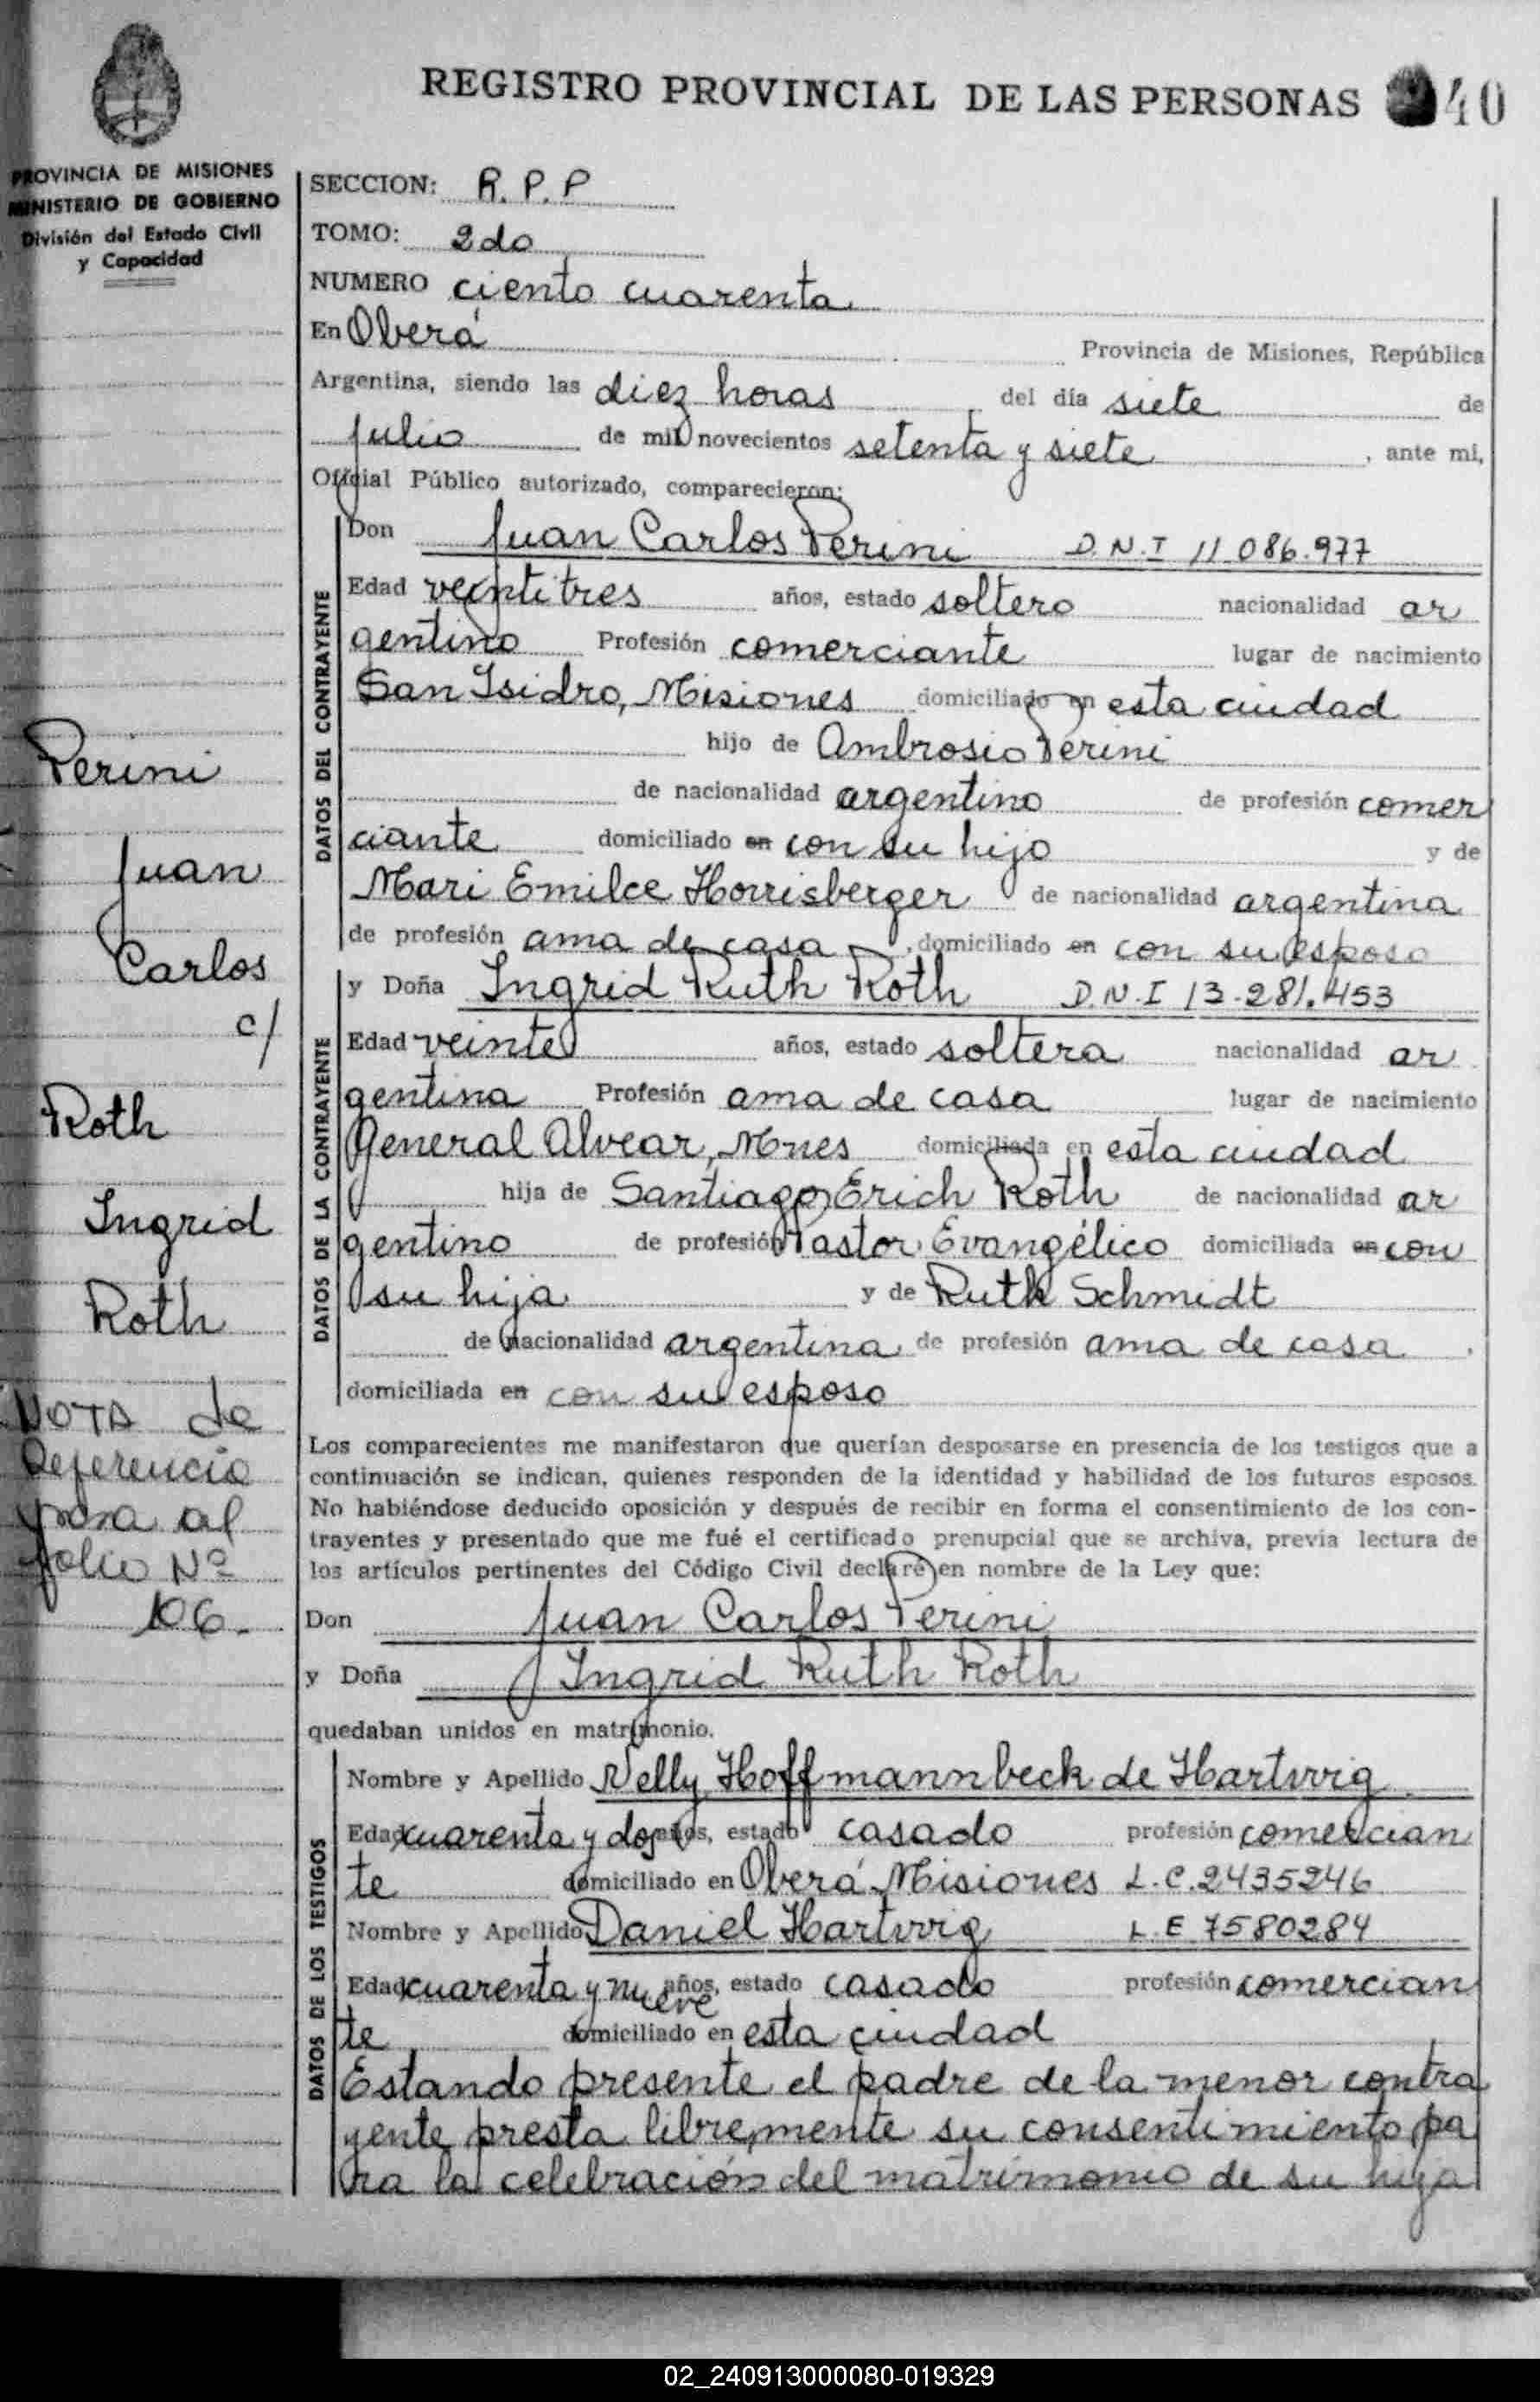 REGISTRO PROVINCIAL DE LAS PERSONAS 40
PROVINCIA DE MISIONES
MINISTERIO DE GOBIERNO
División del Estado Civil
y Capacidad
SECCION: R.P.P
TOMO: 2do
NUMERO ciento cuarenta
En Oberá Provincia de Misiones, República
Argentina, siendo las diez horas del día siete de
julio de mil novecientos setenta y siete, ante mi,
Oficial Público autorizado, comparecieron:
DATOS DEL CONTRAYENTE
Don Juan Carlos Perini D.N.I 11.086.977
Edad veintitres años, estado soltero nacionalidad ar
gentino Profesión comerciante lugar de nacimiento
San Isidro, Misiones domiciliado en esta ciudad
hijo de Ambrosio Perini
de nacionalidad argentino de profesión comer
ciante domiciliado en con su hijo y de
Mari Emilce Horrisberger de nacionalidad argentina
de profesión ama de casa, domiciliado en con su esposo
DATOS DE LA CONTRAYENTE
y Doña Ingrid Ruth Roth D.N.I 13.281.453
Edad veinte años, estado soltera nacionalidad ar
gentina Profesión ama de casa lugar de nacimiento
General Alvear, Mnes domiciliada en esta ciudad
hija de Santiago Erich Roth de nacionalidad ar
gentino de profesión Pastor Evangélico domiciliada en con
su hija y de Ruth Schmidt
de nacionalidad argentina de profesión ama de casa.
domiciliada en con su esposo
Los comparecientes me manifestaron que querían desposarse en presencia de los testigos que a
continuación se indican, quienes responden de la identidad y habilidad de los futuros esposos.
No habiéndose deducido oposición y después de recibir en forma el consentimiento de los con-
trayentes y presentado que me fué el certificado prenupcial que se archiva, previa lectura de
los artículos pertinentes del Código Civil declaré en nombre de la Ley que:
Don Juan Carlos Perini
y Doña Ingrid Ruth Roth
quedaban unidos en matrimonio.
DATOS DE LOS TESTIGOS
Nombre y Apellido Nelly Hoffmannbeck de Hartwig
Edad cuarenta y dos años, estado casado profesión comercian
te domiciliado en Oberá Misiones L.C.2435246
Nombre y Apellido Daniel Hartwig L.E 7580284
Edad cuarenta y nueve años, estado casado profesión comercian
te domiciliado en esta ciudad
Estando presente el padre de la menor contra
yente presta libremente su consentimiento pa
ra la celebración del matrimonio de su hija
Perini
Juan
Carlos
c/
Roth
Ingrid
Roth
NOTA de
Referencia
pasa al
folio Nº
106.
02_240913000080-019329